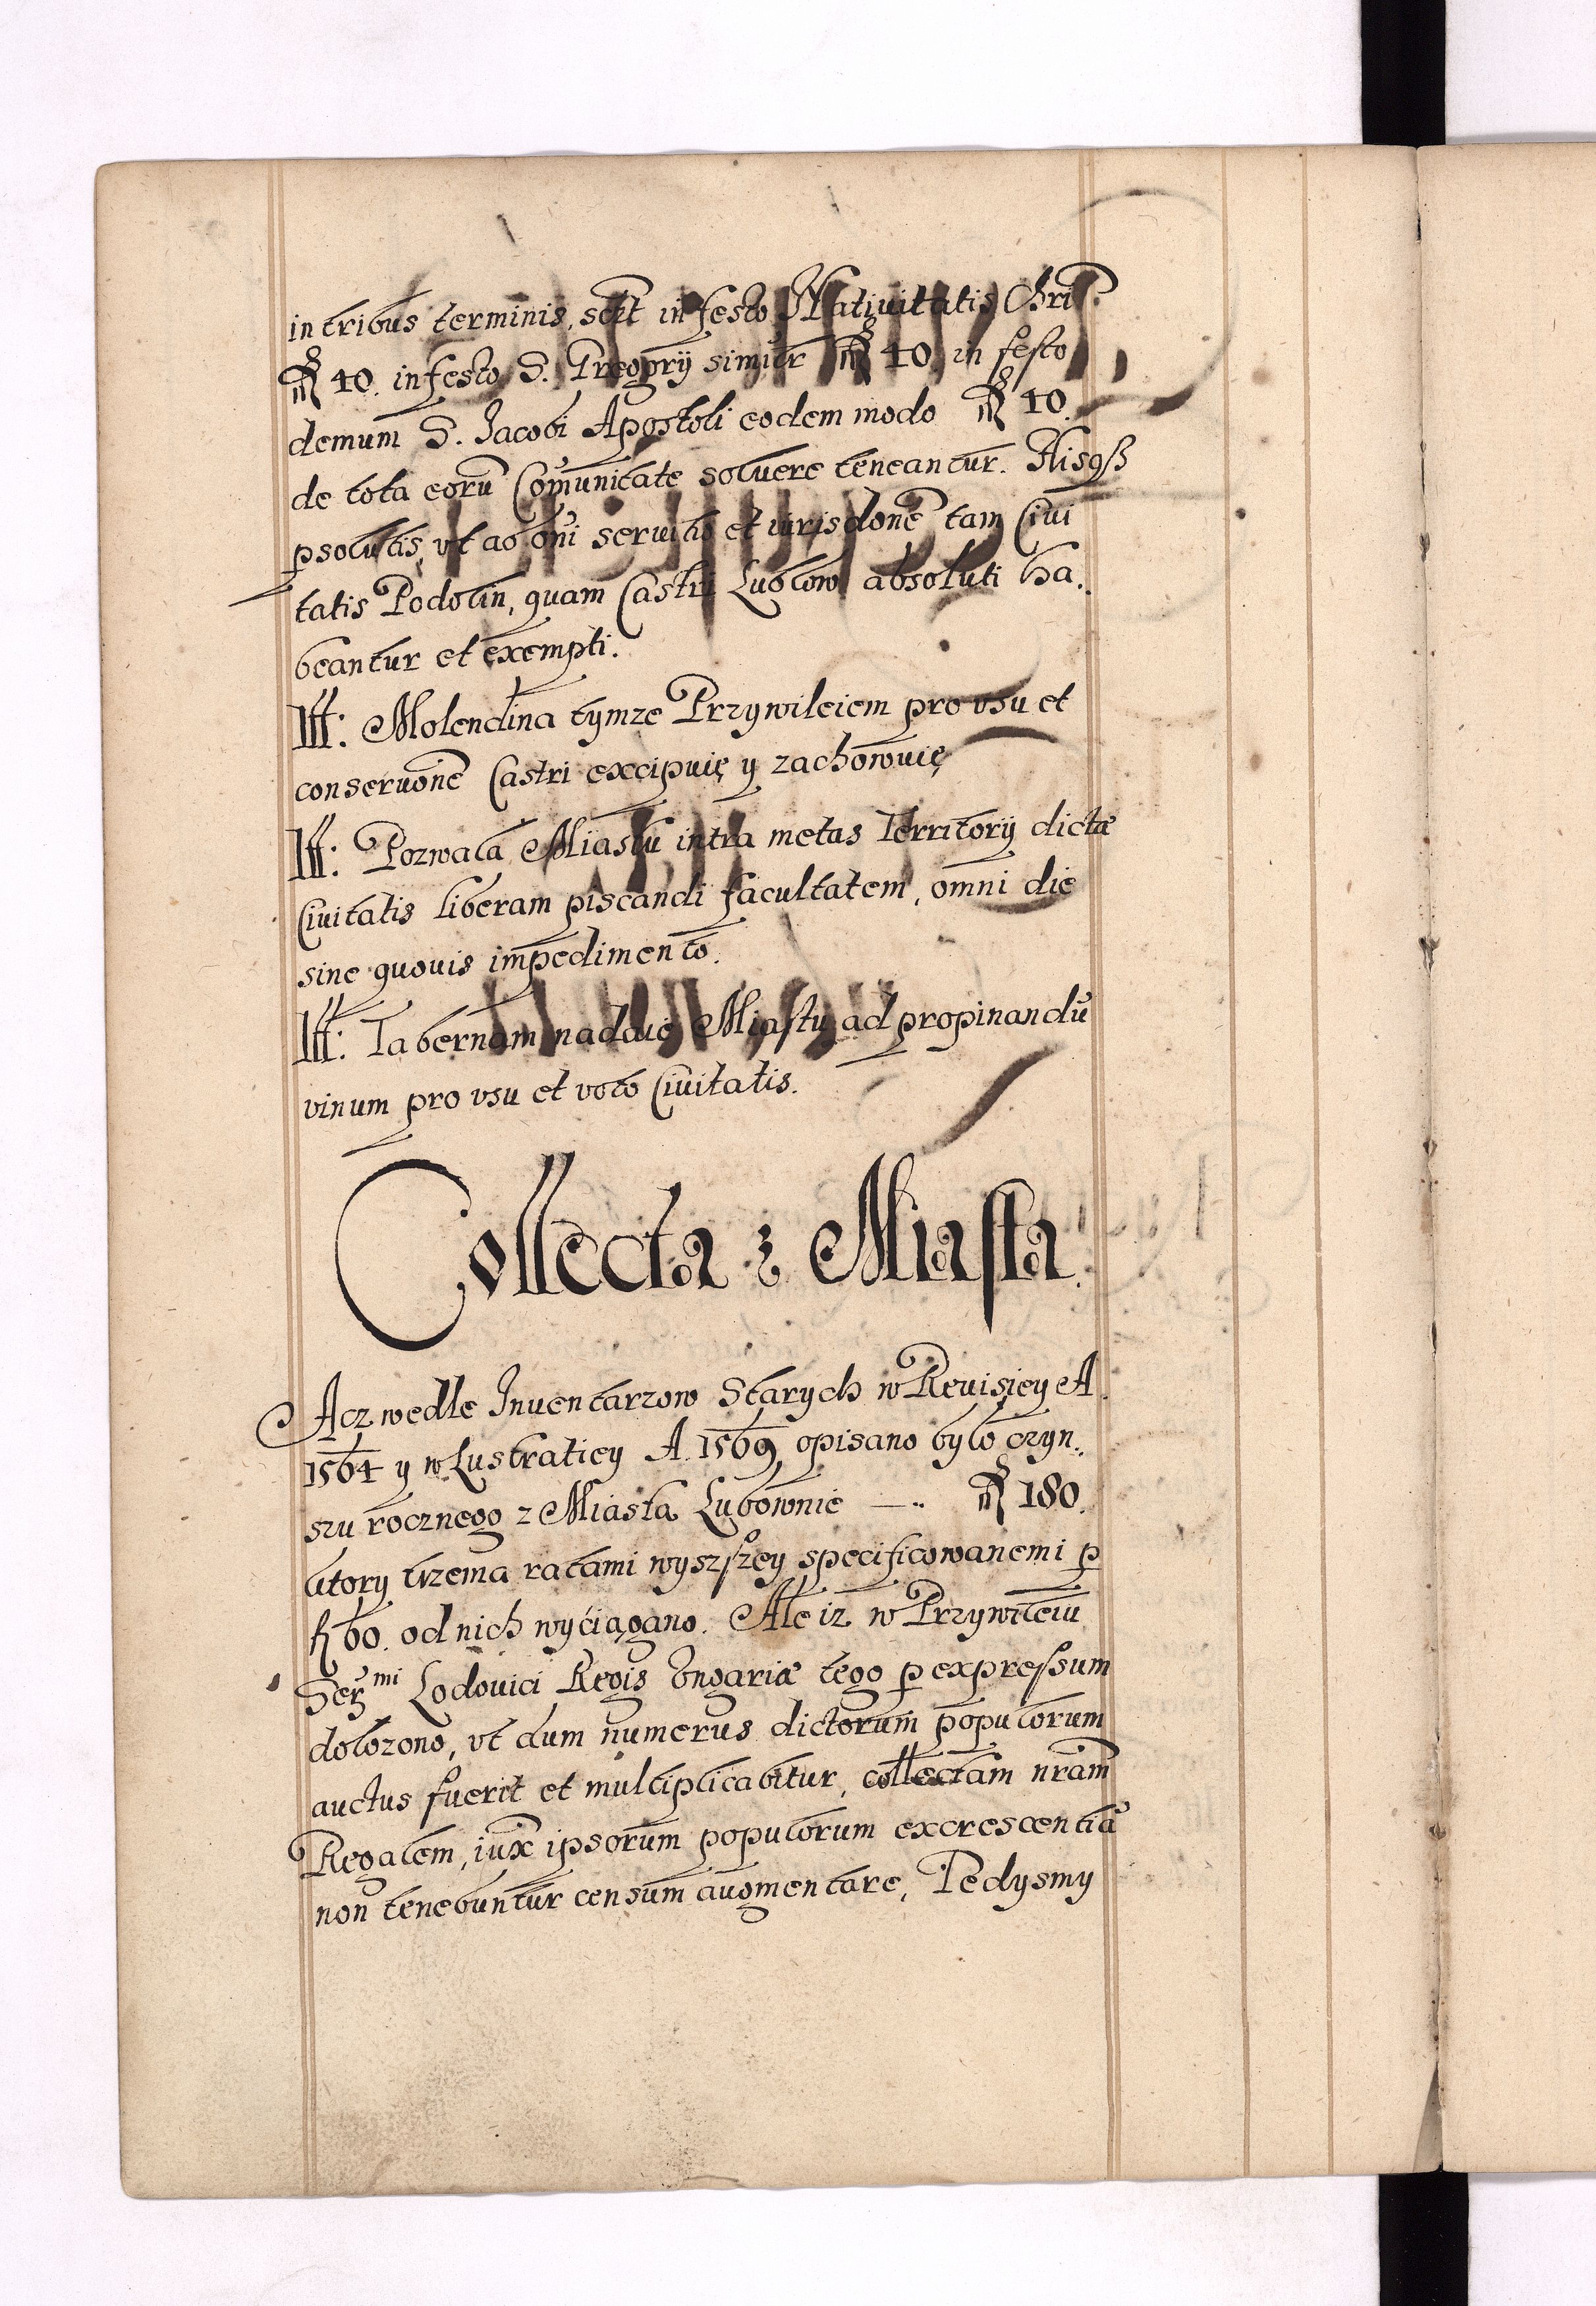 in tribus terminis, sclt in festo Natiuitatis Chri.
fl 40. in festo S. Gregorij similr fl 40. in festo
demum S. Jacobi Apostoli eodem modo fl 40.
de tota eorū Comunitate soluere teneantur. Hisqß
psolutis, vt ab oni seruitio et iurisdone tam Ciui
tatis Podolin, quam Castri Lublow absoluti ha..
beantur et exempti.
Itt: Molendina tymze Przywileiem pro vsu et
conseruone Castri excipuię y zachowuię
Itt: Pozwala Miastu intra metas Territorij dictæ
Ciuitatis liberam piscandi facultatem, omni die
sine quouis impedimento.
Itt: Tabernam nadaie Miastu ad propinandū
vinum pro vsu et voto Ciuitatis.
Collecta z Miasta.
Acz wedle Inuentarzow Starych w Reuisiey A.
1564 y w Lustratiey A. 1569 opisano było czyn..
szu rocznego z Miasta Lubownie —.. fl 180.
ktory trzema ratami wyszszey specificowanemi p
fl 60. od nich wyciągano. Ale iz w Przywileiu
Sermi Lodouici Regis Vngariæ tego p expressum
dolozono, vt dum numerus dictorum populorum
auctus fuerit et multiplicabitur, collectam nram
Regalem, iux ipsorum populorum excrescentiā
non tenebuntur censum augmentare, Tedysmy